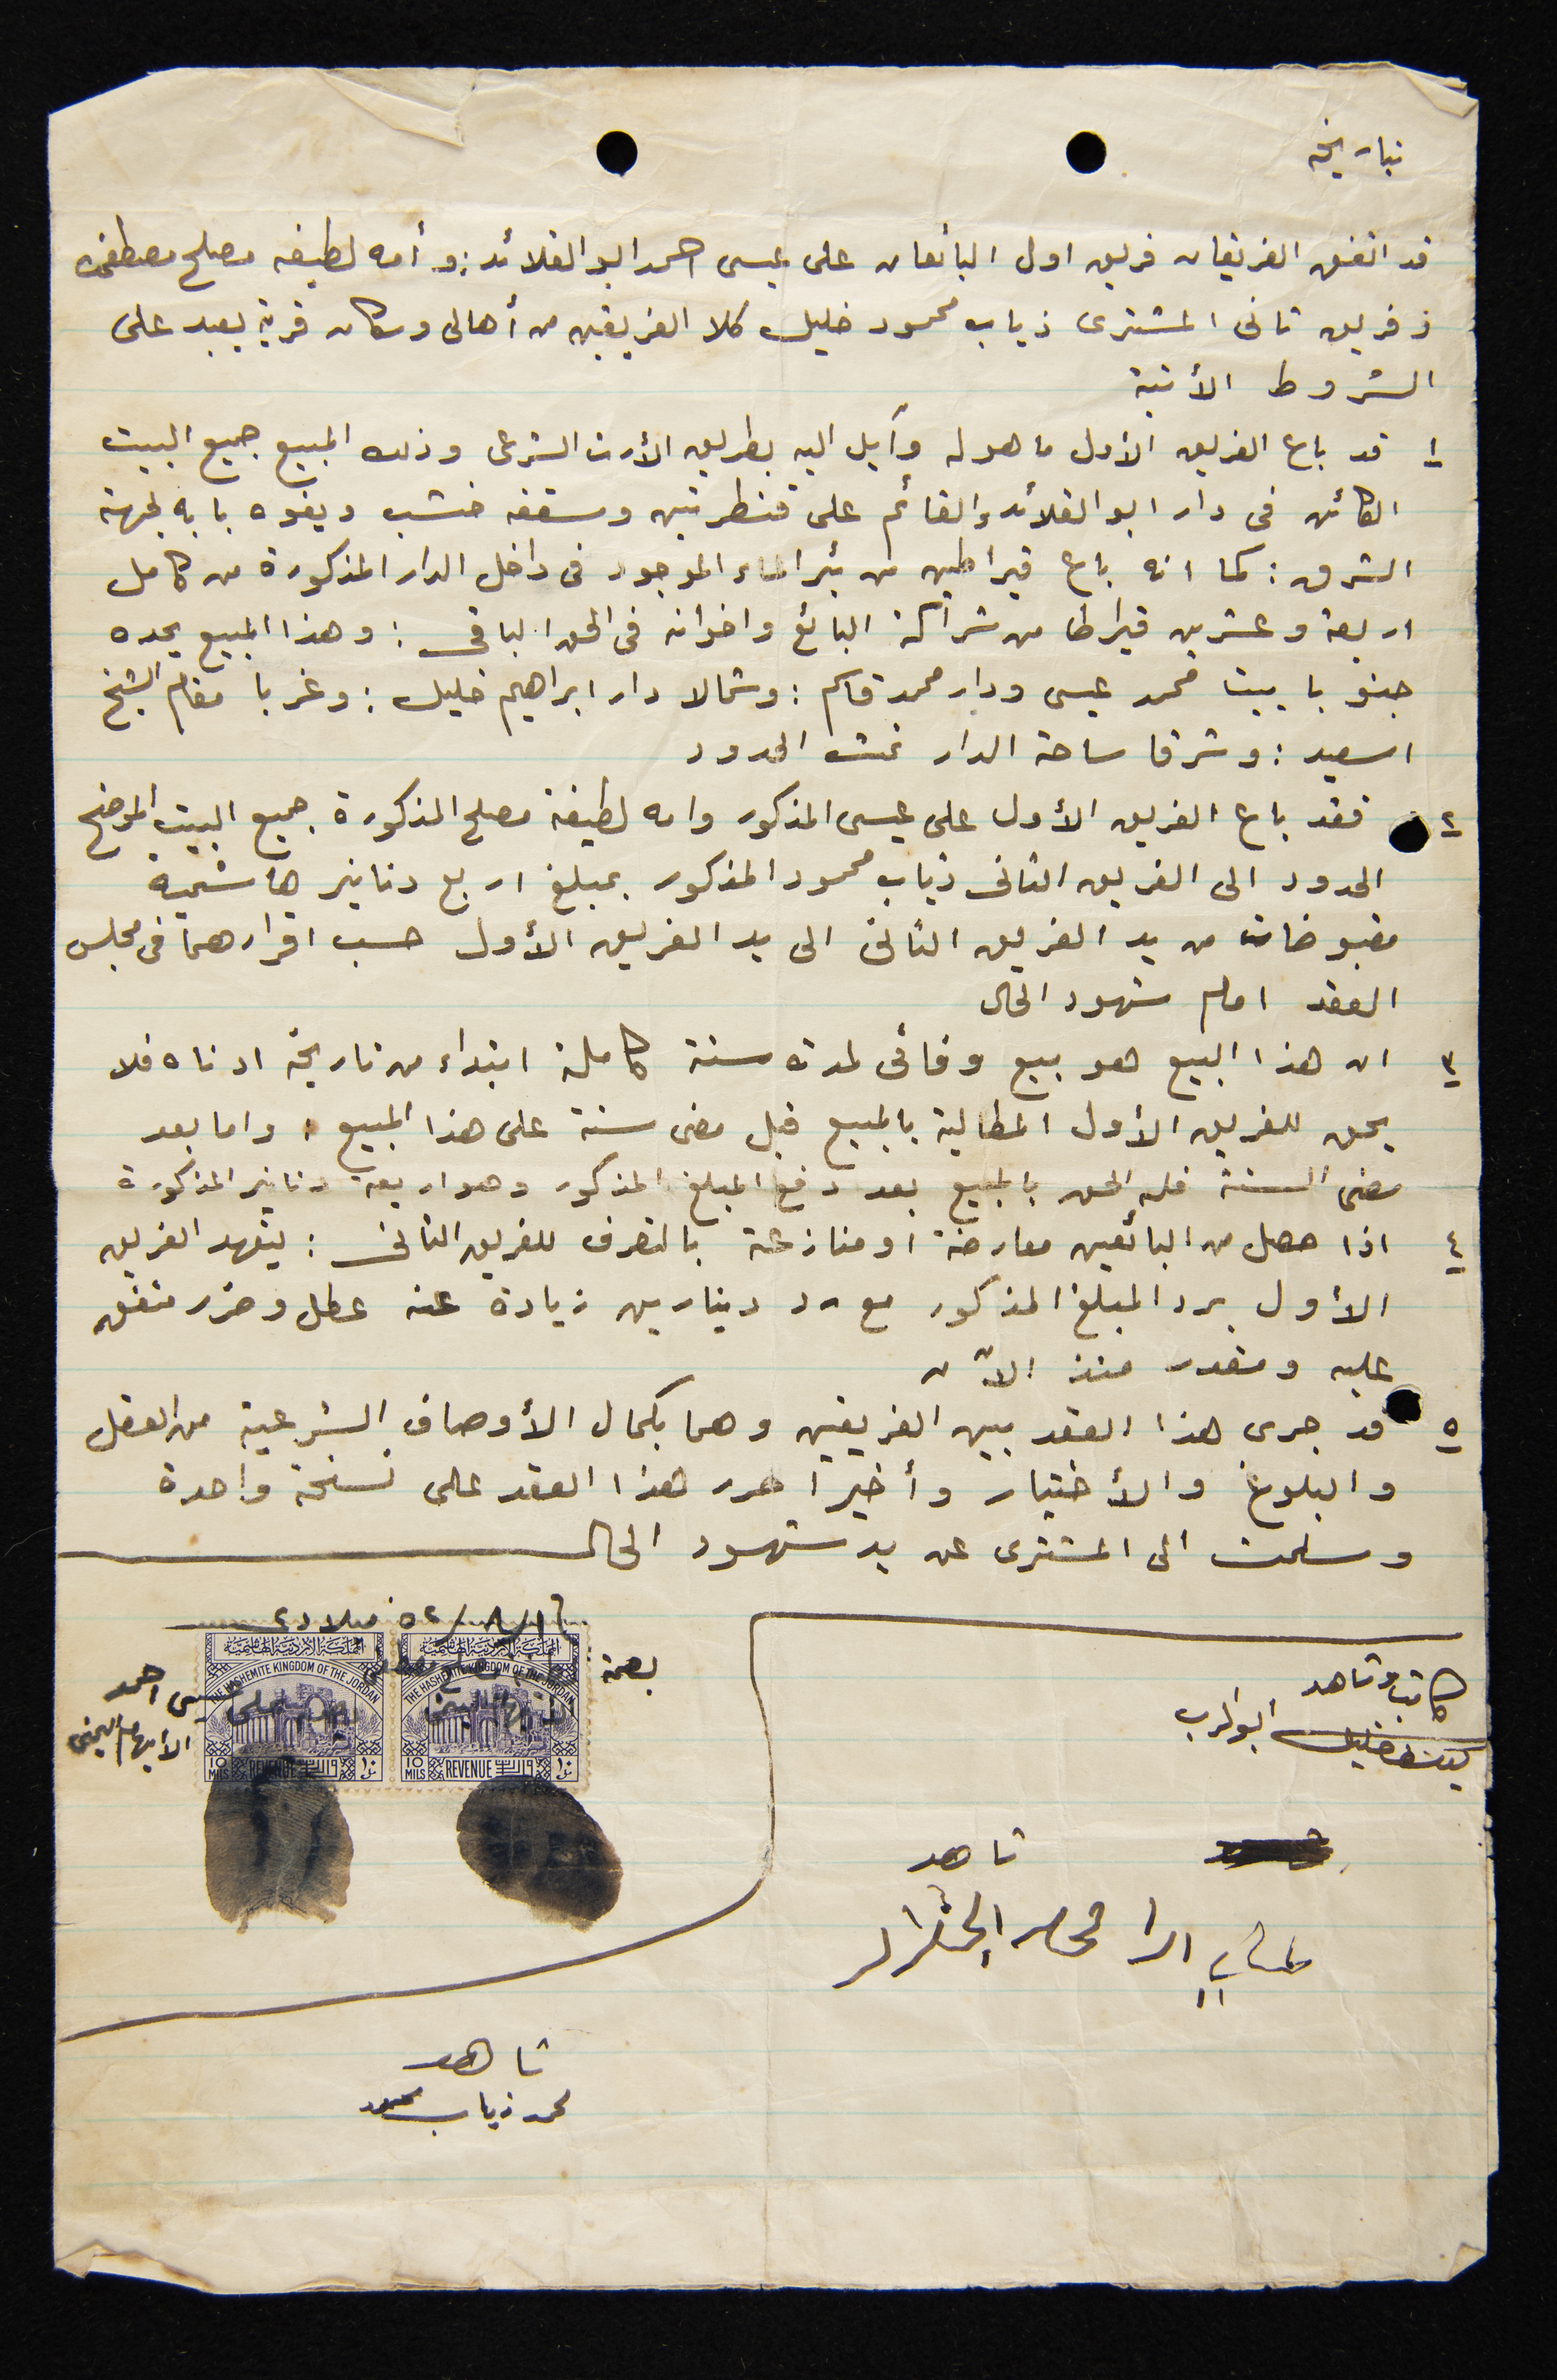 بتاريخه
قد اتفق الفريقان فريق اول البائعان على عيسى احمد ابو القلائد : و أمه لطيفه مصلح مصطفى
و فريق تانى المشترى ذياب محمود خليل كلا الفريقين من أهالى وسكان قرية يعبد على
الشروط الأتية
١ قد باع الفريق الأول ما هو له وآيل اليه بطريق الأرث الشرعى وذلك المبيع جميع البيت
الكائن فى دار ابو القلائد والقائم على قنطرتين وسقفه خشب ويفوه بابه لجهة
الشرق : كما انه باع قيراطين من بئر الماء الموجود فى داخل الدار المذكورة من كامل
اربعة وعشرين قيراطا من شراكة البائع واخوانه فى الحق الباقى : وهذا المبيع يحده
جنوبا بيت محمد عيسى ودار محمد قاسم : وشمالا دار ابراهيم خليل : وغربا مقام الشيخ
اسعيد : وشرقا ساحة الدار تمت الحدود
٢ فقد باع الفريق الأول على عيسى المذكور وامه لطيفة مصلح المذكورة جميع البيت الموضح
الحدود الى الفريق الثانى ذياب محمود المذكور بمبلغ اربع دنانير هاشمية
مقبوضات من يد الفريق الثانى الى يد الفريق الأول حسب اقرارهما فى مجلس
العقد امام شهود الحال
٣ ان هذا البيع هو بيع وفائى لمدة سنة كاملة ابتداء من تاريخه ادناه فلا
يحق للفريق الأول المطالبة بالمبيع قبل مضى سنة على هذا المبيع . واما بعد
مضى السنة فله الحق بالمبيع بعد دفع المبلغ المذكور وهو اربعة دنانير المذكورة
٤ اذا حصل من البائعين معارضة او منازعة بالتصرف للفريق الثانى : يتعهد الفريق
الأول برد المبلغ المذكور مع رد دينارين زيادة عنه عطل وضرر متفق
عليه ومقدر منذ الآن
٥ قد جرى هذا العقد بين الفريقين وهما بكمال الأوصاف الشرعية من العقل
والبلوغ والأختيار وأخيرا حرر هذا العقد على نسخة واحدة
وسلمت الى المشترى عن يد شهود الحال
٥٢/٨/١٦ ميلادى
المملكة الأردنية الهاشمية المملكة الأردنية الهاشمية
THE HASHEMITE KINGDOM OF THE JORDAN THE HASHEMITE KINGDOM OF THE JORDAN
بصمة
عيسى احمد
الأبهام اليمنى
10 MILS REVENUE 10 MILS REVENUE
كاتب وشاهد
خليل ابو الرب
شاهد
شاهد
محمد ذياب محمود